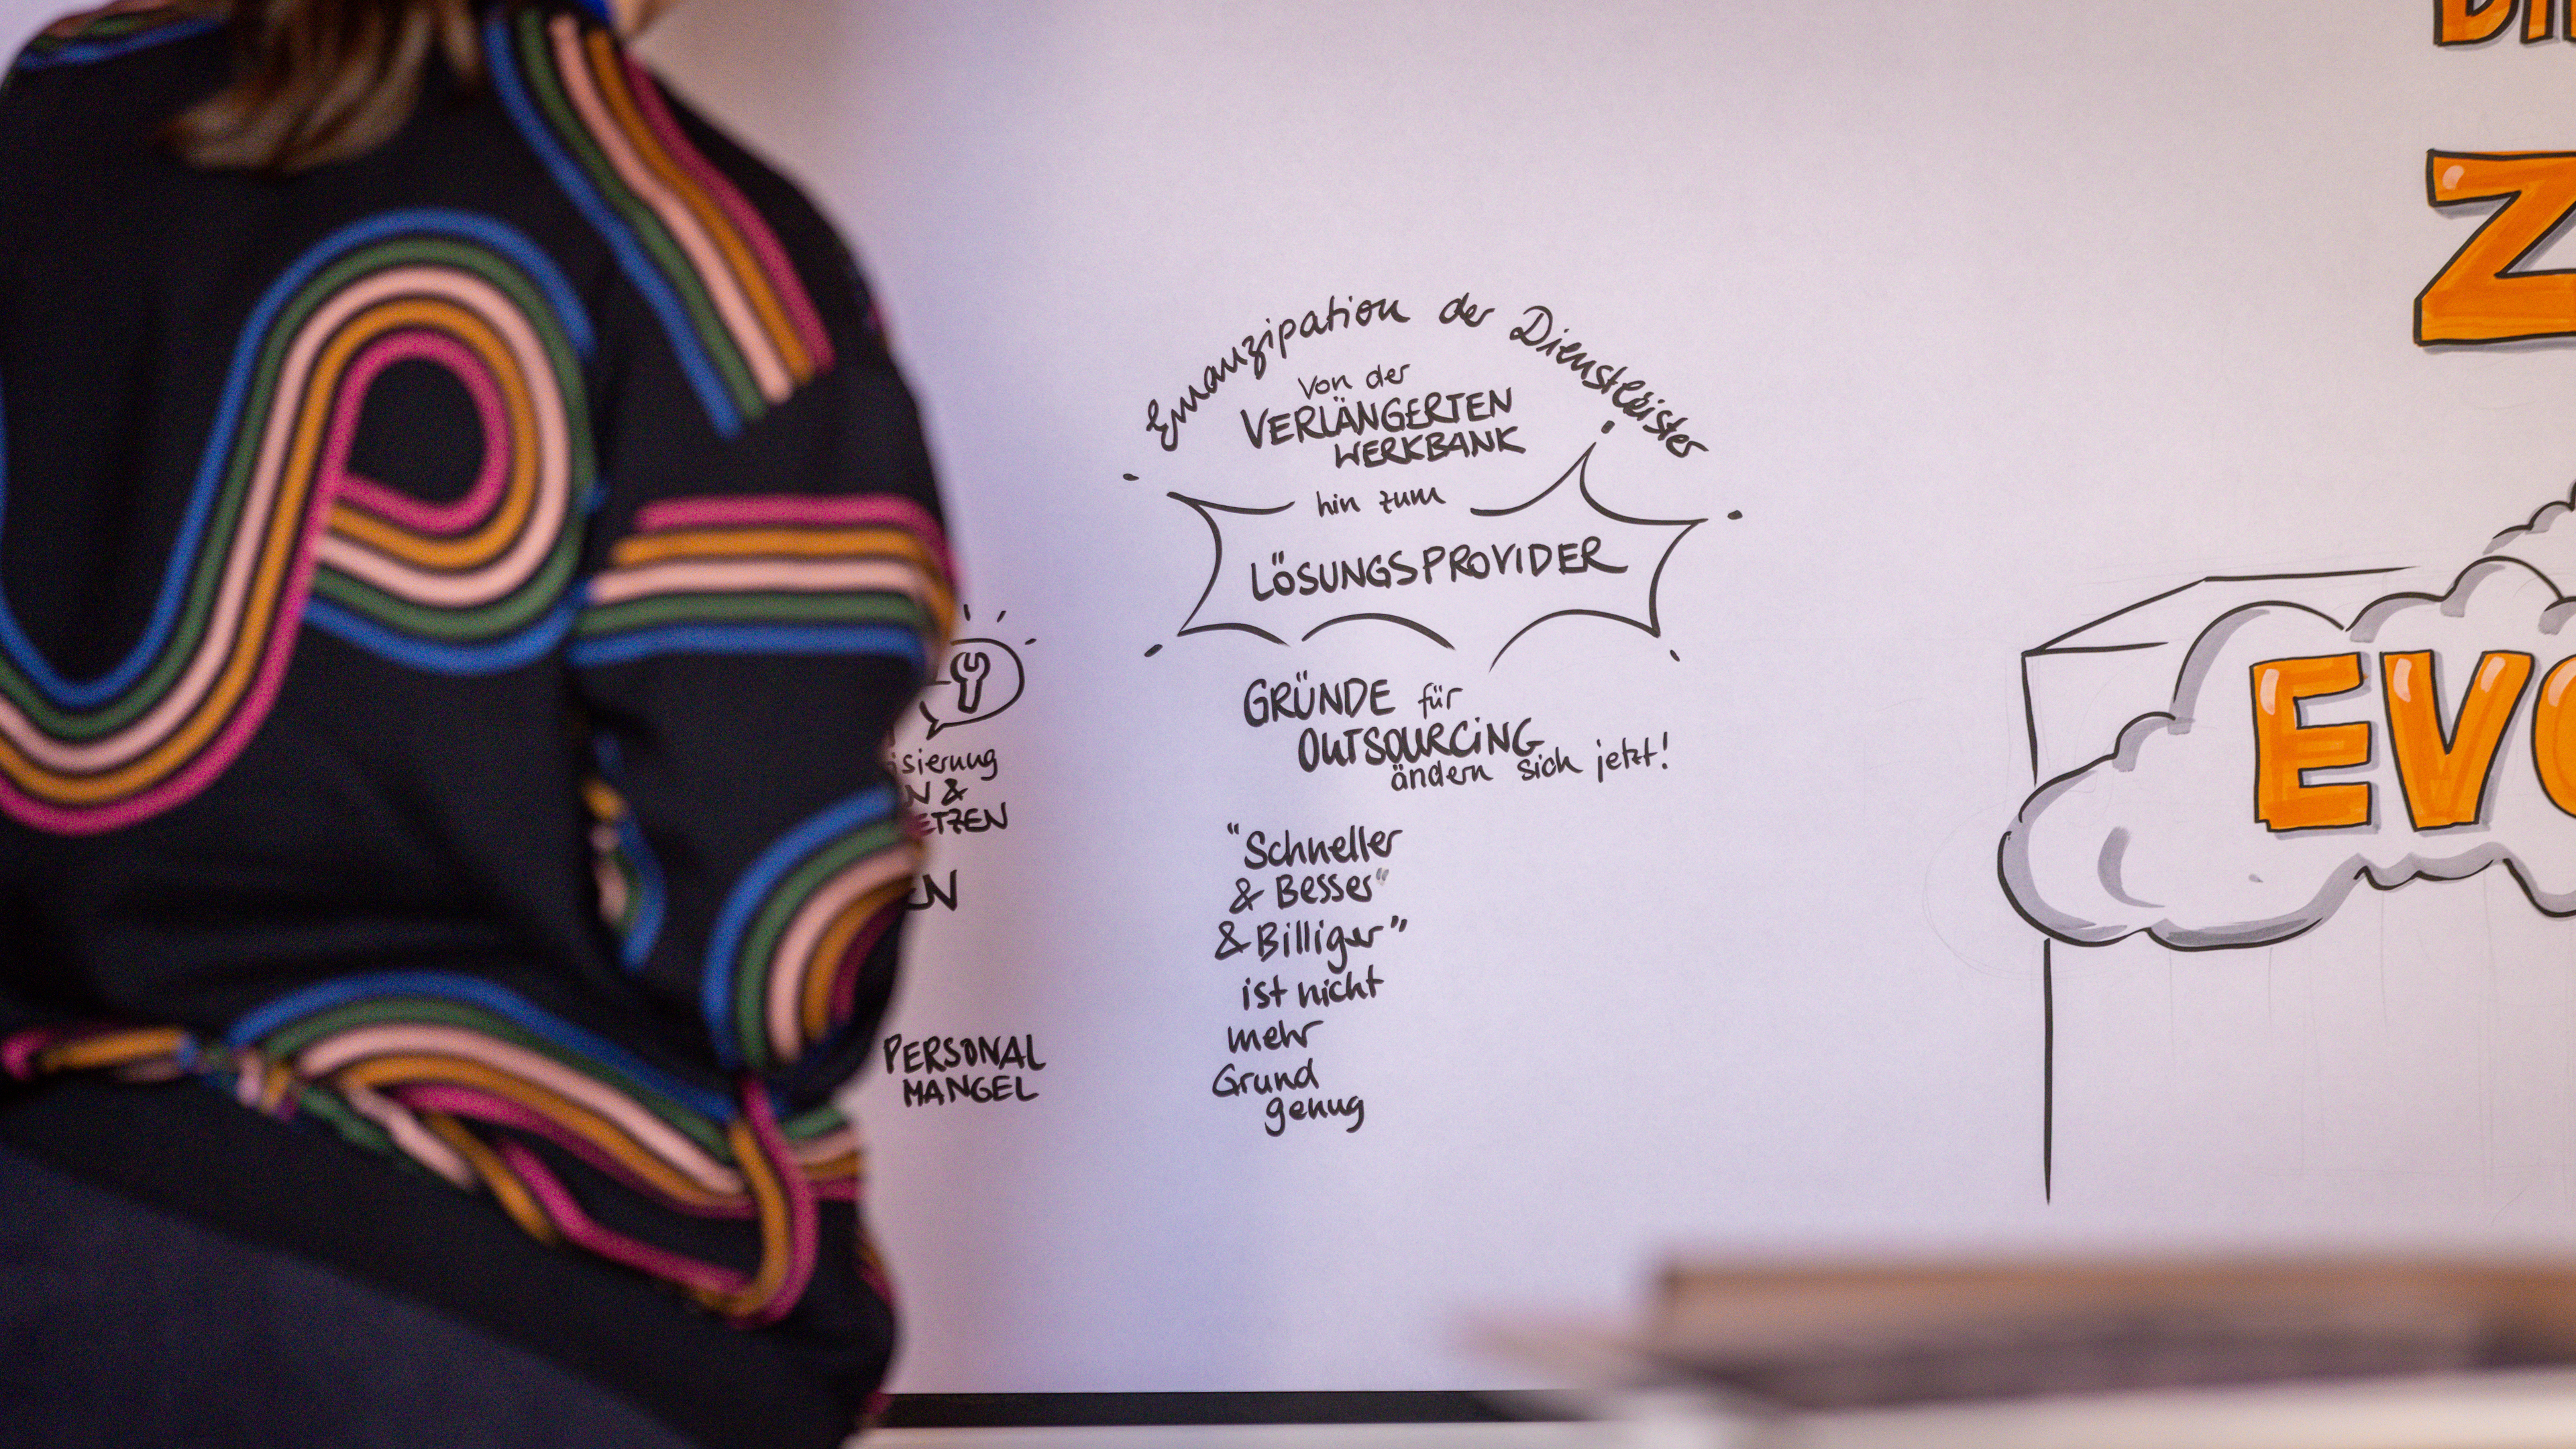 Emanzipation der Dienstleister
von der
VERLÄNGERTEN
WERKBANK
hin zum
LÖSUNGSPROVIDER
GRÜNDE für
OUTSOURCING
ändern sich jetzt!
"Schneller
& Besser"
& Billiger"
ist nicht
mehr
Grund
genug
PERSONAL
MANGEL